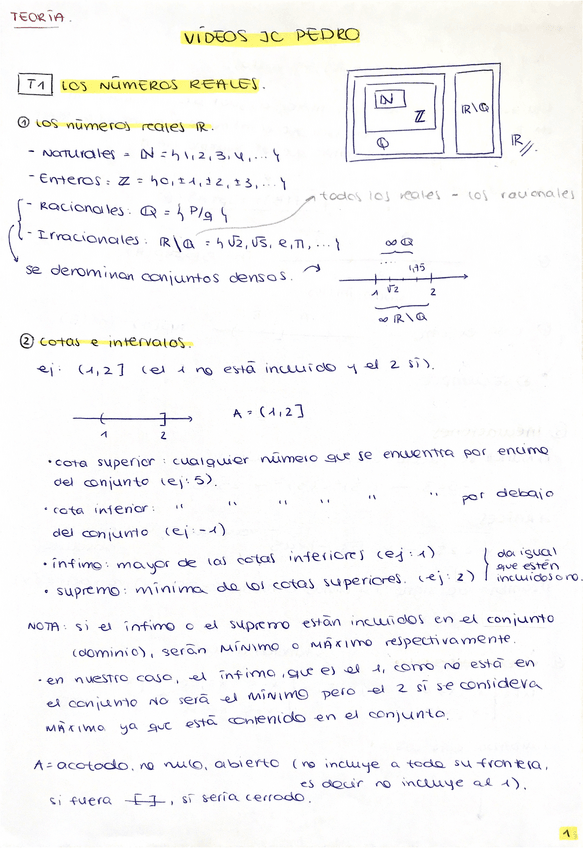 TEORÍA.
VÍDEOS JC PEDRO
T1 LOS NÚMEROS REALES.
① los números reales ℝ.
- Naturales = ℕ = {1, 2, 3, 4, ... }
- Enteros: ℤ = {0, ±1, ±2, ±3, ... }
- Racionales: ℚ = { P/q }
- Irracionales: ℝ\ℚ = {√2, √5, e, π, ... }
se denominan conjuntos densos.
ℕ
ℤ
ℚ
ℝ\ℚ
ℝ
todos los reales - los racionales
∞ ℚ
... 1,75
1 √2 2
∞ ℝ\ℚ
② cotas e intervalos.
ej: (1,2] (el 1 no está incluido y el 2 sí).
1 2
A = (1,2]
• cota superior: cualquier número que se encuentra por encima
del conjunto (ej: 5).
• cota inferior: " " " " " " por debajo
del conjunto (ej: -1)
• ínfimo: mayor de las cotas inferiores (ej: 1)
• supremo: mínima de las cotas superiores. (ej: 2)
da igual
que estén
incluidos o no.
NOTA: si el ínfimo o el supremo están incluidos en el conjunto
(dominio), serán MÍNIMO o MÁXIMO respectivamente.
• en nuestro caso, el ínfimo, que es el 1, como no está en
el conjunto NO será el MÍNIMO pero el 2 sí se considera
MÁXIMO ya que está contenido en el conjunto.
A = acotado, no nulo, abierto (no incluye a toda su frontera,
es decir no incluye al 1).
si fuera [ ], sí sería cerrado.
1